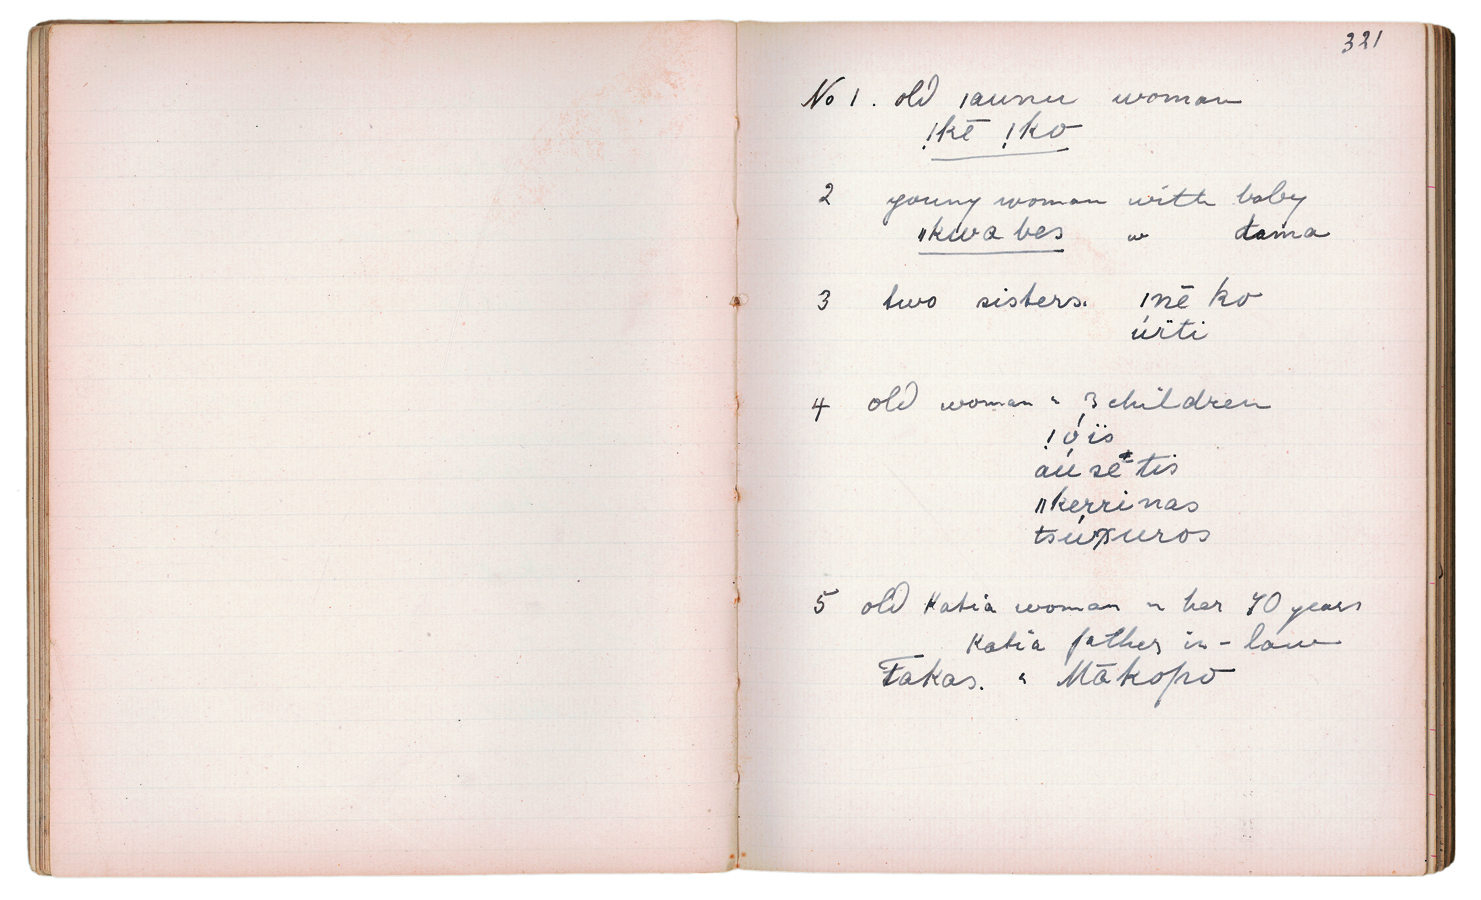 321
No 1. old ǀaunu woman
ǃkē ǃko
2 young woman with baby
ǁkwa bes " dama
3 two sisters. ǀnē ko
úïti
4 old woman " 3 children
ǃóïs
aúsē tis
ǁkerrinas
tsúxuros
5 old Katia woman " her 70 years
Katia father in-law
Takas. " Mākopo